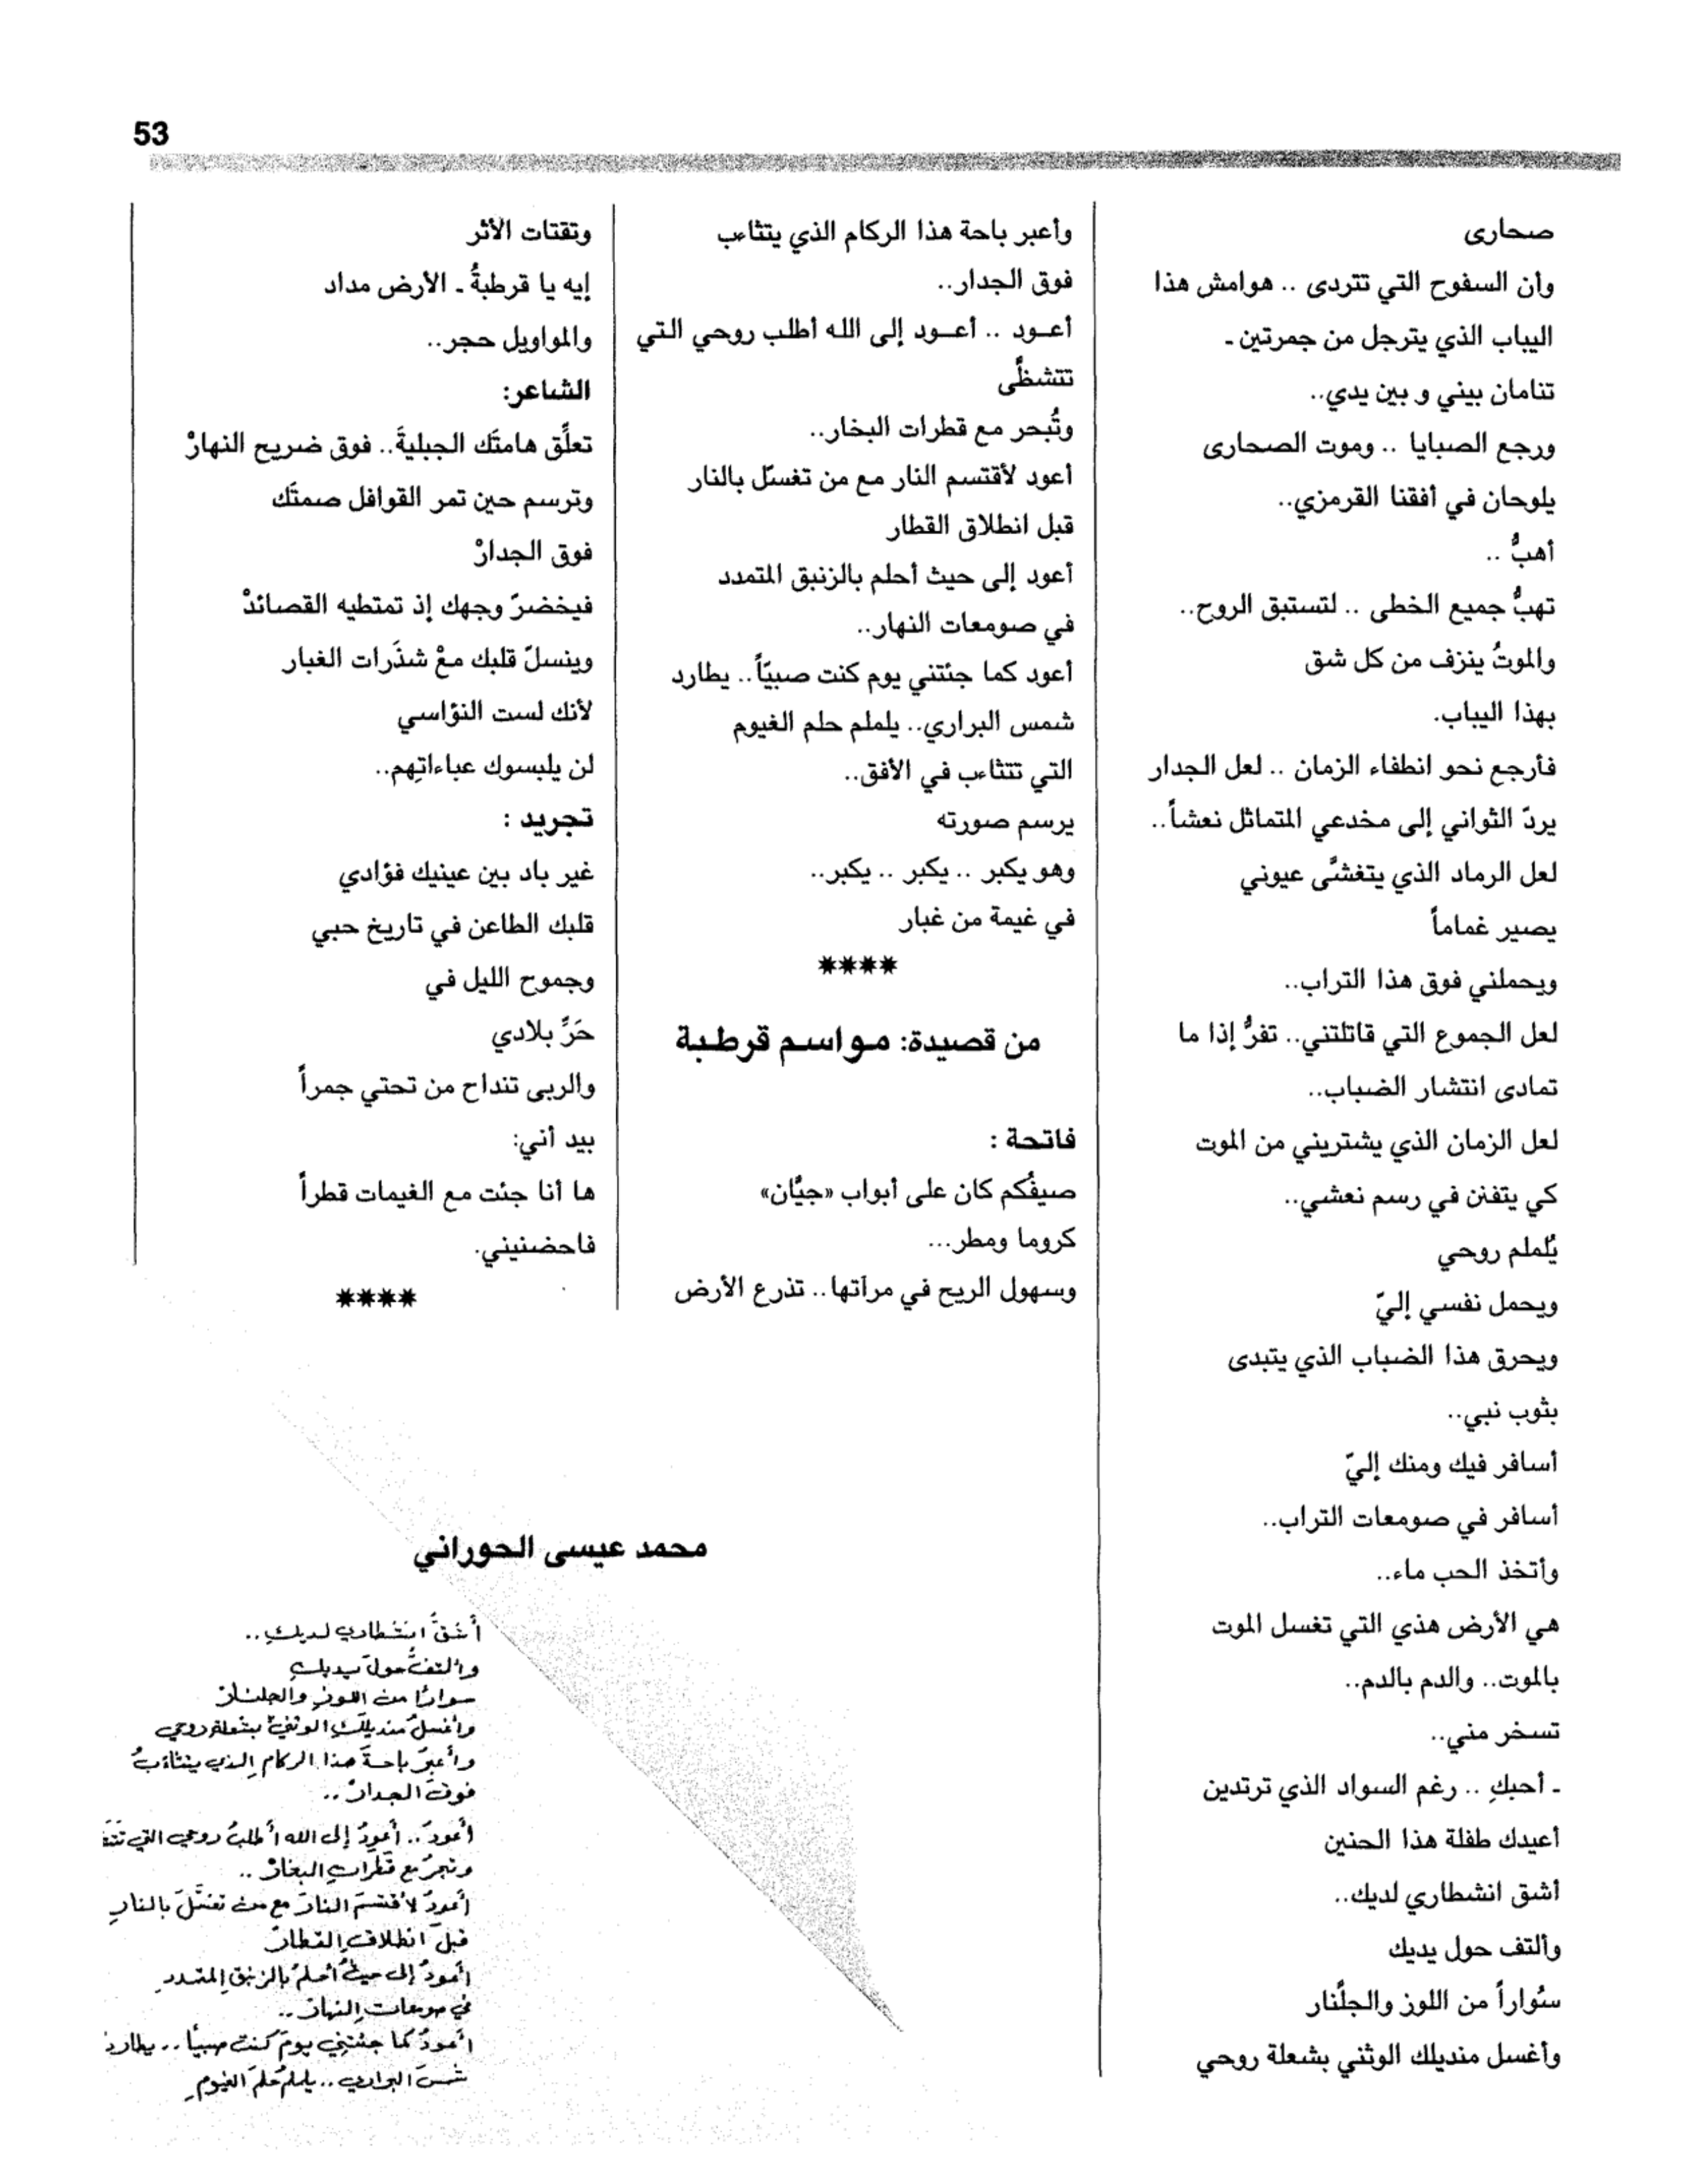 53
صحارى
وأن السفوح التي تتردى .. هوامش هذا
اليباب الذي يترجل من جمرتين ـ
تنامان بيني و بين يدي..
ورجع الصبايا .. وموت الصحارى
يلوحان في أفقنا القرمزي..
أهبُّ ..
تهبُّ جميع الخطى .. لتستبق الروح..
والموتُ ينزف من كل شق
بهذا اليباب.
فأرجع نحو انطفاء الزمان .. لعل الجدار
يردّ الثواني إلى مخدعي المتماثل نعشاً..
لعل الرماد الذي يتغشَّى عيوني
يصير غماماً
ويحملني فوق هذا التراب..
لعل الجموع التي قاتلتني.. تفرُّ إذا ما
تمادى انتشار الضباب..
لعل الزمان الذي يشتريني من الموت
كي يتفنن في رسم نعشي..
يُلملم روحي
ويحمل نفسي إليّ
ويحرق هذا الضباب الذي يتبدى
بثوب نبي..
أسافر فيك ومنك إليّ
أسافر في صومعات التراب..
وأتخذ الحب ماء..
هي الأرض هذي التي تغسل الموت
بالموت.. والدم بالدم..
تسخر مني..
ـ أحبكِ .. رغم السواد الذي ترتدين
أعيدك طفلة هذا الحنين
أشق انشطاري لديك..
وألتف حول يديك
سُواراً من اللوز والجلَّنار
وأغسل منديلك الوثني بشعلة روحي
وأعبر باحة هذا الركام الذي يتثاءب
فوق الجدار..
أعـود .. أعـود إلى الله أطلب روحي التي
تتشظَّى
وتُبحر مع قطرات البخار..
أعود لأقتسم النار مع من تغسّل بالنار
قبل انطلاق القطار
أعود إلى حيث أحلم بالزنبق المتمدد
في صومعات النهار..
أعود كما جئتني يوم كنت صبيّاً.. يطارد
شمس البراري.. يلملم حلم الغيوم
التي تتثاءب في الأفق..
يرسم صورته
وهو يكبر .. يكبر .. يكبر..
في غيمة من غبار
****
من قصيدة: مواسم قرطبة
فاتحة :
صيفُكم كان على أبواب «جيَّان»
كروما ومطر...
وسهول الريح في مرآتها.. تذرع الأرض
وتقتات الأثر
إيه يا قرطبةُ ـ الأرض مداد
والمواويل حجر..
الشاعر:
تعلِّق هامتَك الجبليةَ.. فوق ضريح النهارْ
وترسم حين تمر القوافل صمتَك
فوق الجدارْ
فيخضرّ وجهك إذ تمتطيه القصائدْ
وينسلّ قلبك معْ شذَرات الغبار
لأنك لست النؤاسي
لن يلبسوك عباءاتِهم..
تجريد :
غير باد بين عينيك فؤادي
قلبك الطاعن في تاريخ حبي
وجموح الليل في
حَرِّ بلادي
والربى تنداح من تحتي جمراً
بيد أني:
ها أنا جئت مع الغيمات قطراً
فاحضنيني.
****
محمد عيسى الحوراني
أشقُّ انشطاري لديكِ..
وألتفُّ حولَ يديكِ
سوارًا من اللوزِ والجلنارْ
وأغسلُ منديلَكِ الوثنيَّ بشعلةِ روحي
وأعبرُ باحةَ هذا الركامِ الذي يتثاءبُ
فوقَ الجدارْ..
أعودُ.. أعودُ إلى الله أطلبُ روحي التي
وتبحرُ مع قطراتِ البخارْ..
أعودُ لأقتسمَ النارَ مع من تغسَّلَ بالنارِ
قبلَ انطلاقِ القطارْ
أعودُ إلى حيثُ أحلمُ بالزنبقِ المتمددِ
في صومعاتِ النهارْ..
أعودُ كما جئتِني يومَ كنتُ صبيًّا.. يطاردُ
شمسَ البراري.. يلملمُ حلمَ الغيومِ